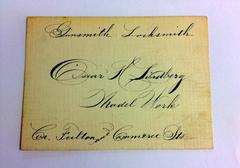 Gunsmith Locksmith
Oscar H Lindberg
Model Work
Cr. Fulton and Commerce Sts